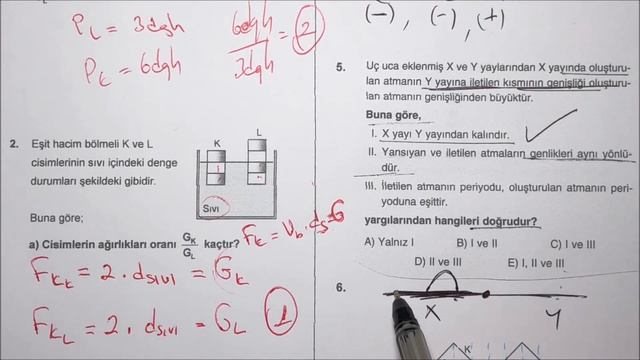 P_L = 3dgh
P_K = 6dgh
6dgh
3dgh
= 2
2. Eşit hacim bölmeli K ve L
cisimlerinin sıvı içindeki denge
durumları şekildeki gibidir.
K
L
Sıvı
Buna göre;
a) Cisimlerin ağırlıkları oranı G_K/G_L kaçtır?
F_K = V_b . d_s = G
F_KK = 2 . dsıvı = G_K
F_KL = 2 . dsıvı = G_L
1
(-) , (-) , (+)
5. Uç uca eklenmiş X ve Y yaylarından X yayında oluşturu-
lan atmanın Y yayına iletilen kısmının genişliği oluşturu-
lan atmanın genişliğinden büyüktür.
Buna göre,
I. X yayı Y yayından kalındır.
II. Yansıyan ve iletilen atmaların genlikleri aynı yönlü-
dür.
III. İletilen atmanın periyodu, oluşturulan atmanın peri-
yoduna eşittir.
yargılarından hangileri doğrudur?
A) Yalnız I B) I ve II C) I ve III
D) II ve III E) I, II ve III
6.
X Y
K